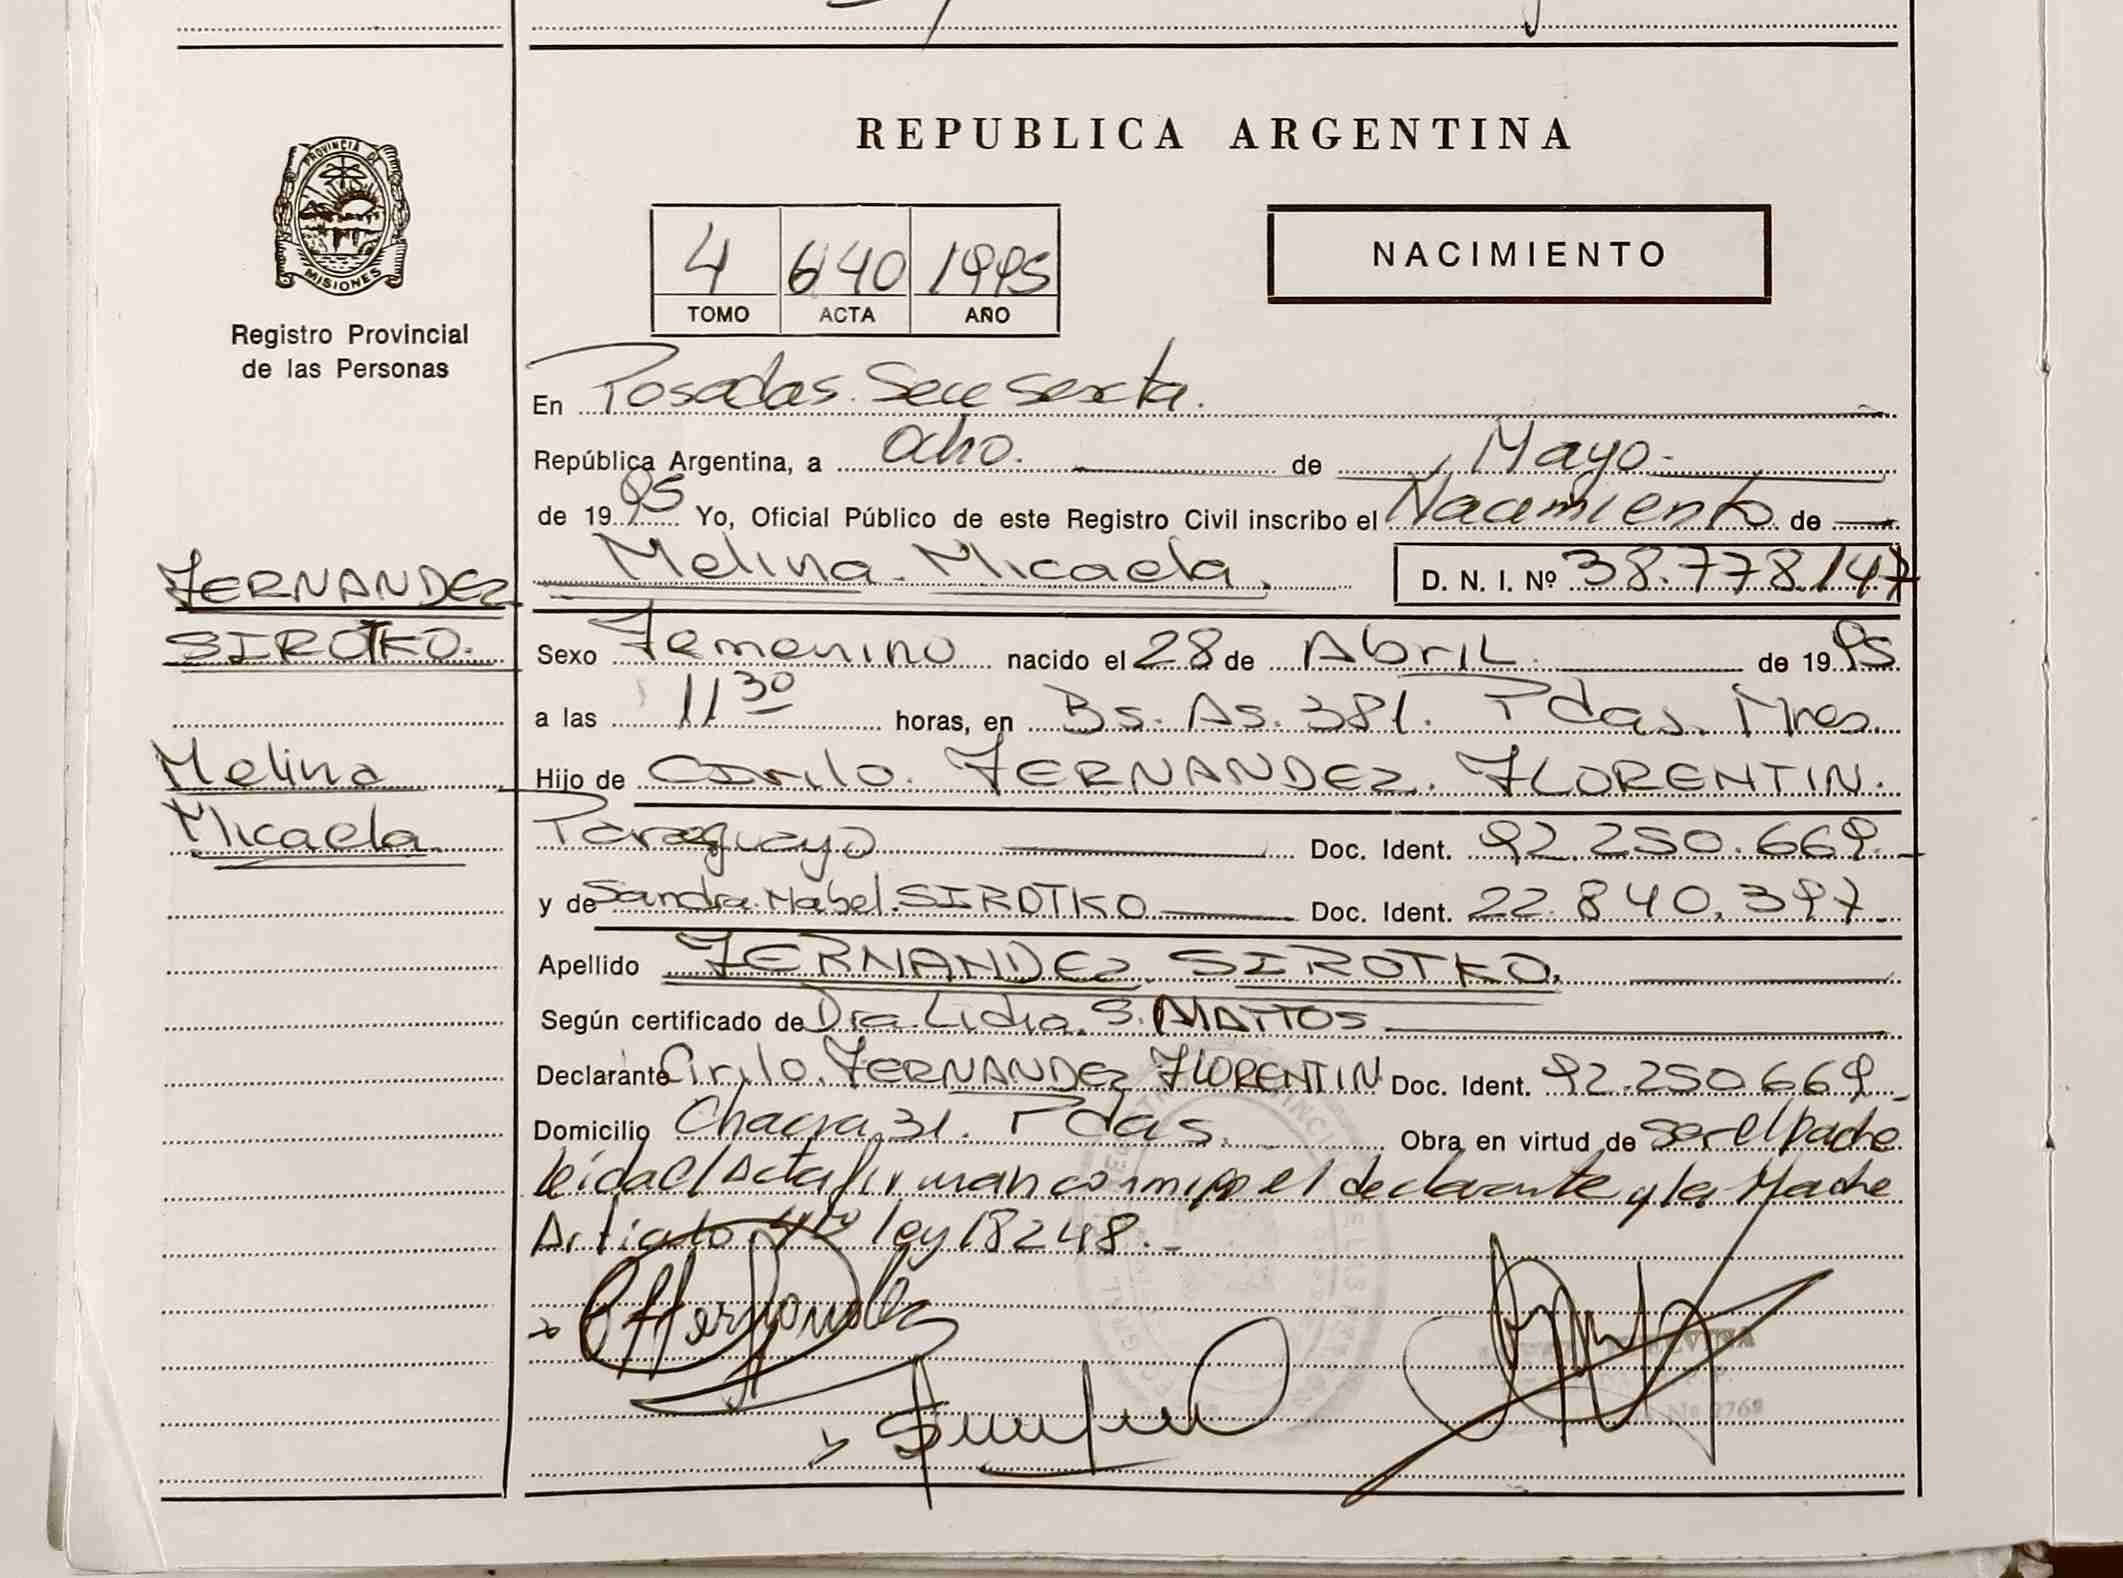 REPUBLICA ARGENTINA
PROVINCIA DE MISIONES
Registro Provincial
de las Personas
4 640 1995
TOMO ACTA AÑO
NACIMIENTO
En Posadas. Secc Sexta.
República Argentina, a Ocho. de Mayo.
de 1995 Yo, Oficial Público de este Registro Civil inscribo el Nacimiento de
FERNANDEZ
SIROTKO.
Melina
Micaela.
Melina. Micaela. D. N. I. Nº 38.778.147
Sexo Femenino nacido el 28 de Abril. de 1995
a las 11 30 horas, en Bs. As. 381. Pdas. Mnes.
Hijo de Cirilo. FERNANDEZ. FLORENTIN.
Paraguayo Doc. Ident. 92.250.669.
y de Sandra. Mabel. SIROTKO Doc. Ident. 22.840.397
Apellido FERNANDEZ SIROTKO.
Según certificado de Dra. Lidia. S. MATTOS
Declarante Cirilo. FERNANDEZ FLORENTIN Doc. Ident. 92.250.669
Domicilio Chacra 31. Pdas. Obra en virtud de ser el padre
leida el Acta firman conmigo el declarante y la Madre
Articulo 4to ley 18248.-